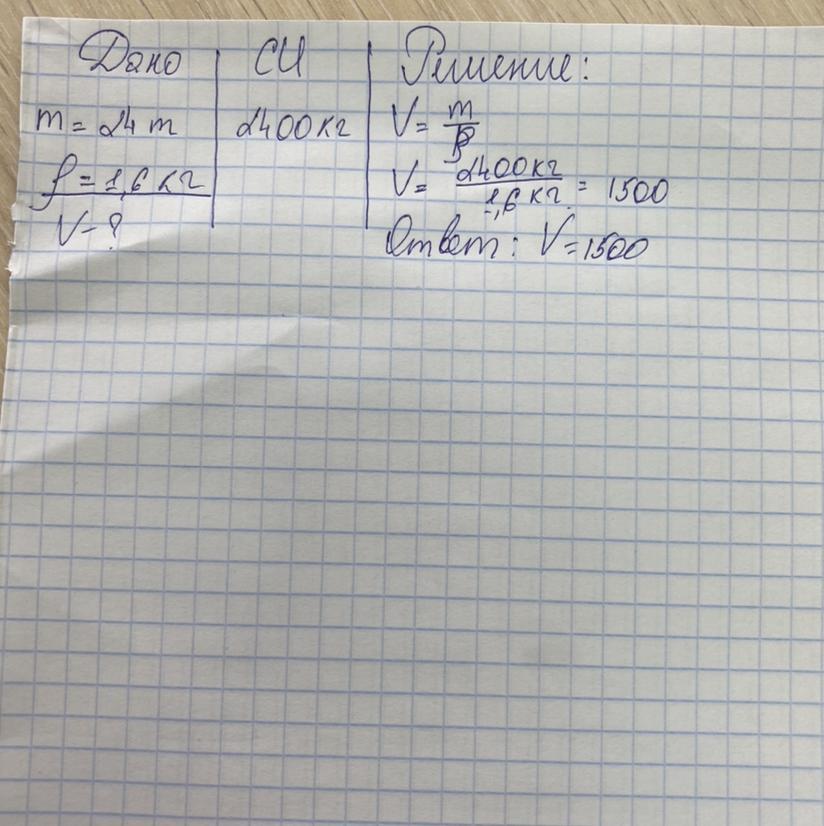 Дано
СИ
Решение:
m = 24 т
2400 кг
V = m/ρ
ρ = 1,6 кг
V = 2400 кг / 1,6 кг = 1500
V - ?
Ответ: V = 1500